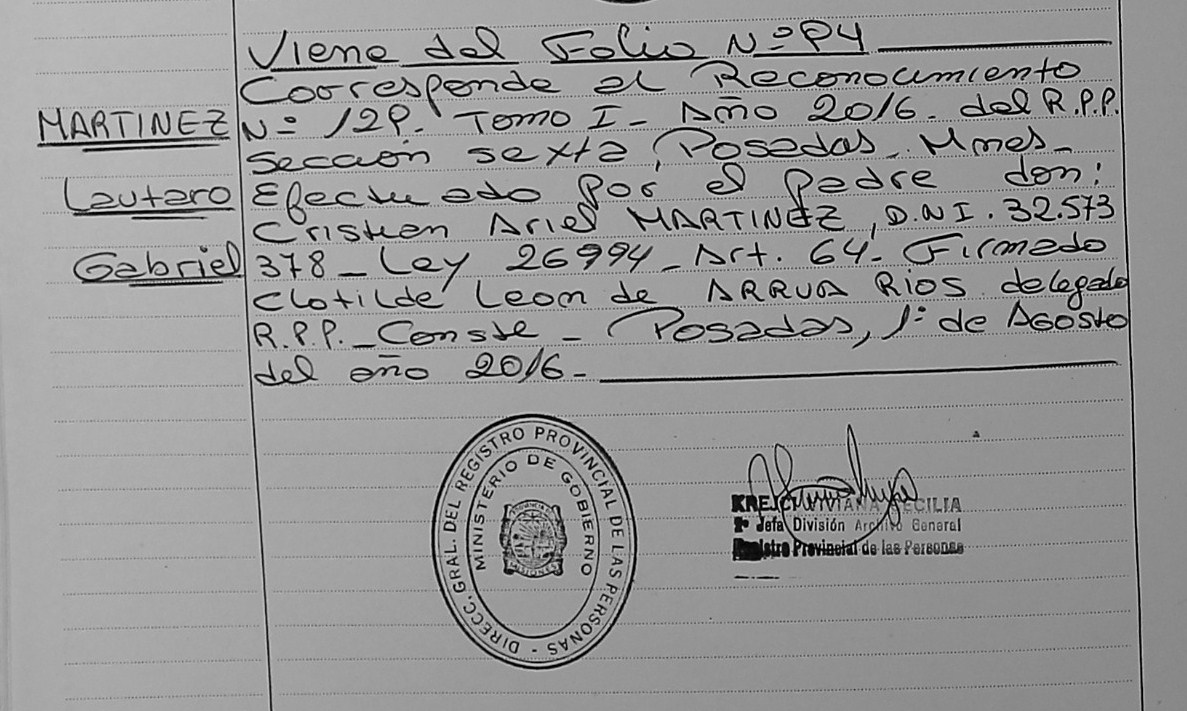 Viene del Folio Nº 94
Corresponde el Reconocimiento
MARTINEZ Nº 129. Tomo I - Año 2016. del R.P.P.
Sección sexta, Posadas, Mnes-
Lautaro Efectuado por el padre don:
Cristian Ariel MARTINEZ, D.N.I. 32.573
Gabriel 378 - Ley 26994 - Art. 64 - Firmado
Clotilde Leon de ARRUA RIOS delegado
R.P.P. - Conste - Posadas, 1º de Agosto
del año 2016 -
DIRECC. GRAL. DEL REGISTRO PROVINCIAL DE LAS PERSONAS -
MINISTERIO DE GOBIERNO
MISIONES
KREJCI VIVIANA CECILIA
Jefa División Archivo General
Registro Provincial de las Personas